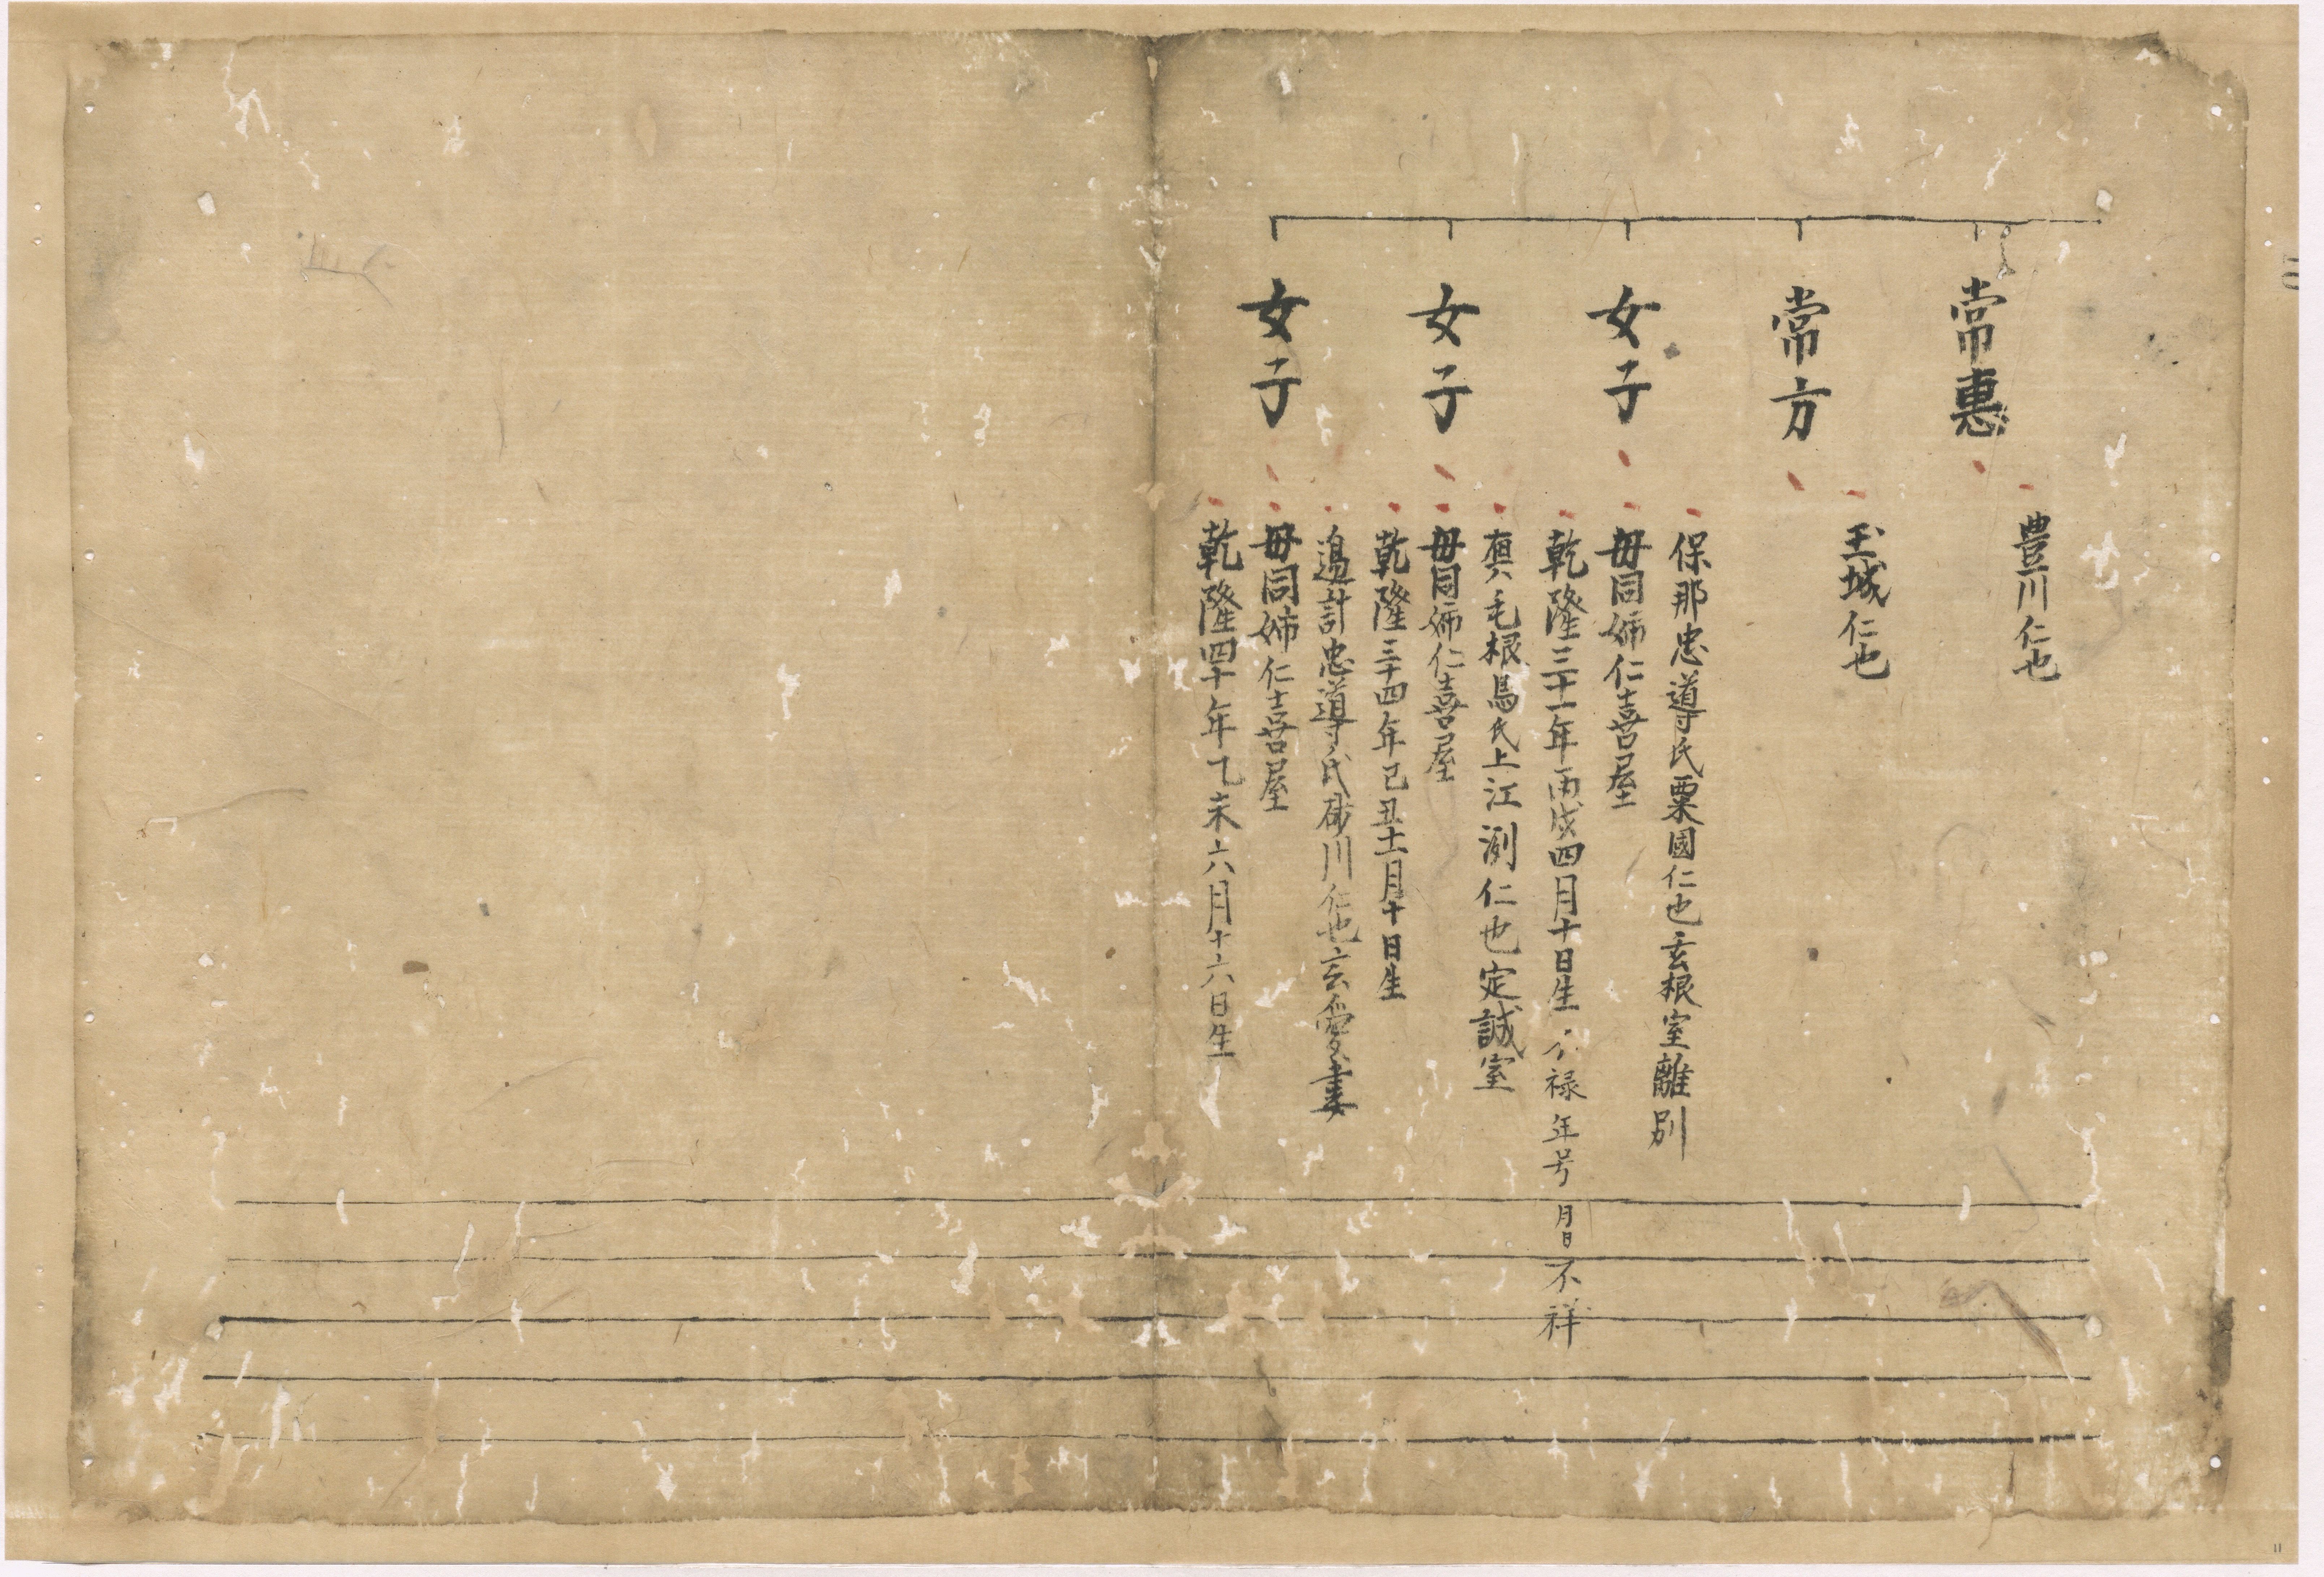 常惠
豊川仁也
常方
玉城仁也
女子
保那忠導氏粟國仁也玄根室離別
母同姉仁喜屋
乾隆三十一年丙戌四月十日生 不禄年号 月日不祥
女子
真毛根馬氏上江洌仁也定誠室
母同姉仁喜屋
乾隆三十四年己丑十一月十日生
女子
思計忠導氏砂川仁也玄愛妻
母同姉仁喜屋
乾隆四十年乙未六月十六日生
11